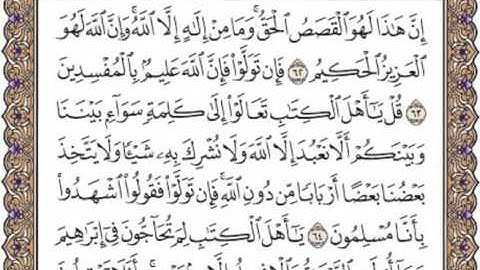 إِنَّ هَٰذَا لَهُوَ ٱلْقَصَصُ ٱلْحَقُّ ۚ وَمَا مِنْ إِلَٰهٍ إِلَّا ٱللَّهُ ۚ وَإِنَّ ٱللَّهَ لَهُوَ
ٱلْعَزِيزُ ٱلْحَكِيمُ ٦٢ فَإِن تَوَلَّوْا۟ فَإِنَّ ٱللَّهَ عَلِيمٌۢ بِٱلْمُفْسِدِينَ
٦٣ قُلْ يَٰٓأَهْلَ ٱلْكِتَٰبِ تَعَالَوْا۟ إِلَىٰ كَلِمَةٍ سَوَآءٍۭ بَيْنَنَا
وَبَيْنَكُمْ أَلَّا نَعْبُدَ إِلَّا ٱللَّهَ وَلَا نُشْرِكَ بِهِۦ شَيْـًٔا وَلَا يَتَّخِذَ
بَعْضُنَا بَعْضًا أَرْبَابًا مِّن دُونِ ٱللَّهِ ۚ فَإِن تَوَلَّوْا۟ فَقُولُوا۟ ٱشْهَدُوا۟
بِأَنَّا مُسْلِمُونَ ٦٤ يَٰٓأَهْلَ ٱلْكِتَٰبِ لِمَ تُحَآجُّونَ فِىٓ إِبْرَٰهِيمَ